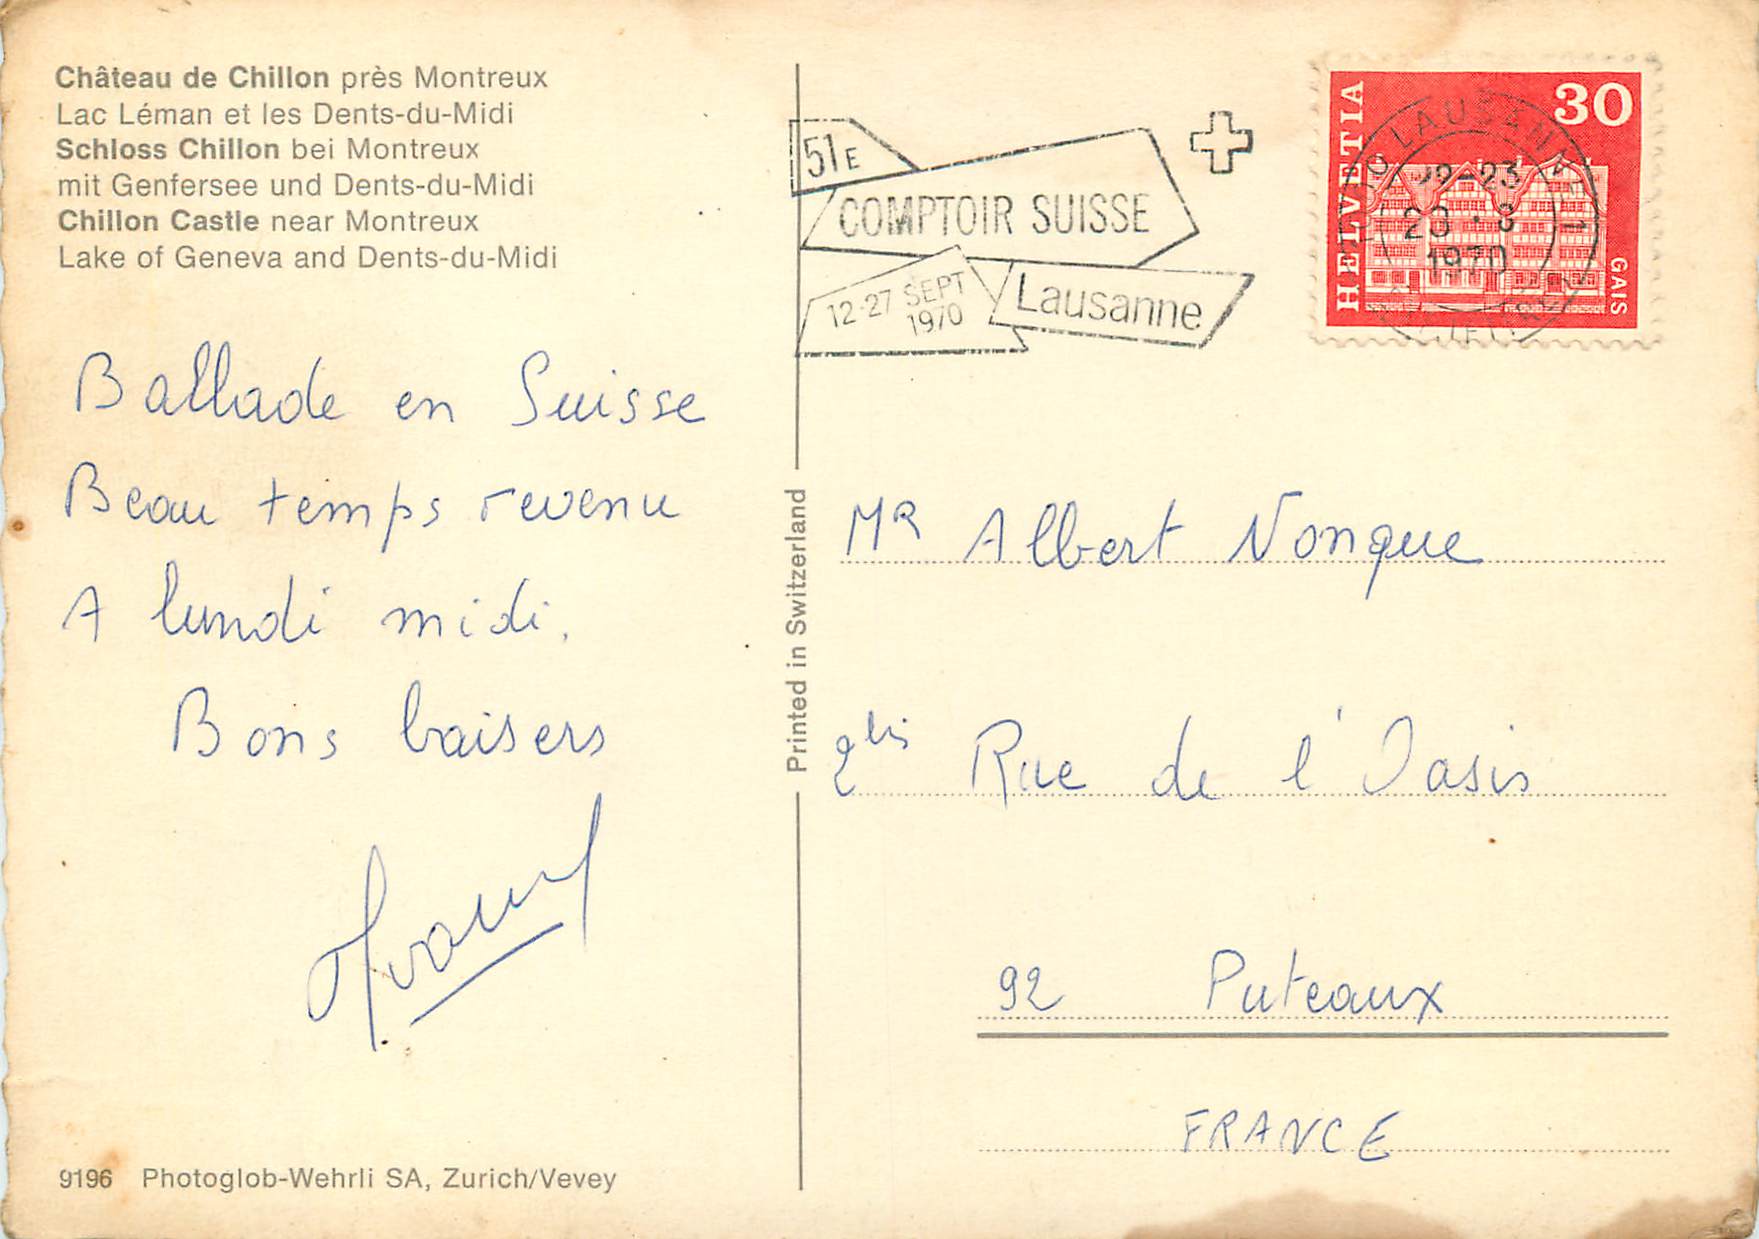 Château de Chillon près Montreux
Lac Léman et les Dents-du-Midi
Schloss Chillon bei Montreux
mit Genfersee und Dents-du-Midi
Chillon Castle near Montreux
Lake of Geneva and Dents-du-Midi
Ballade en Suisse
Beau temps revenu
A lundi midi.
Bons baisers
9196 Photoglob-Wehrli SA, Zurich/Vevey
Printed in Switzerland
51E
COMPTOIR SUISSE
12-27 SEPT
1970
Lausanne
HELVETIA
30
GAIS
LAUSANNE 1
22-23
1970
MR Albert Nonque
2bis Rue de l'Oasis
92 Puteaux
FRANCE